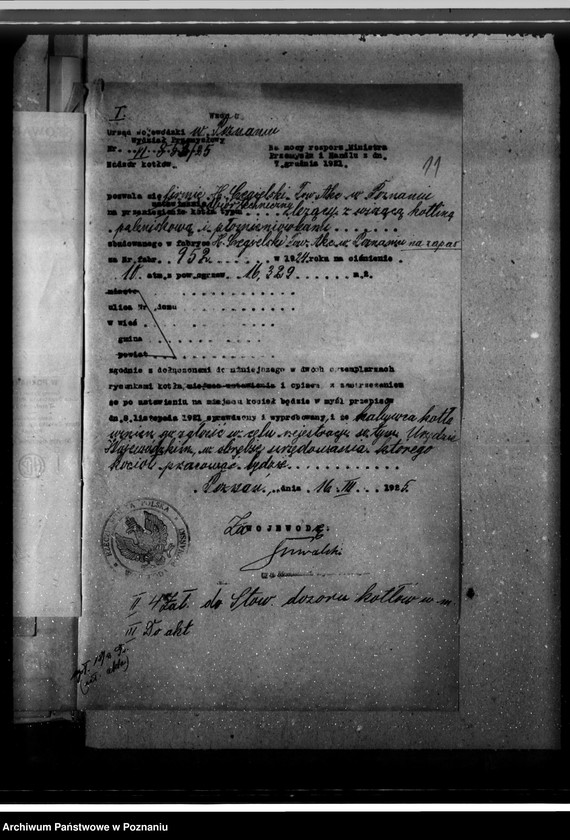 I.
Wzór
Urząd Wojewódzki w Poznaniu
Wydział Przemysłowy
Nr.
Nadzór kotłów.
Na mocy rozporz. Ministra
Przemysłu i Handlu z dn.
7. grudnia 1921.
11
pozwala się firmie H. Cegielski Tow. Akc. w Poznaniu
na przeniesienie kotła typu leżący z wiszącą
płomieniówkami
zbudowanego w fabryce H. Cegielski Tow. Akc. w Poznaniu na zapas
za Nr. fabr. 952 w 1924 roku na ciśnienie
10 atm. z pow. ogrzew. 16,329 m.2.
miasto
ulica Nr. domu
w wsi
gmina
powiat
zgodnie z dołączonemi do niniejszego w dwóch egzemplarzach
rysunkami kotła, miejsca ustawienia i opisem z zastrzeżeniem
że po ustawieniu na miejscu kocioł będzie w myśl przepisów
dn. 8. listopada 1921 sprawdzony i wypróbowany i że nabywca kotła
winien go zgłosić w celu rejestracji w tym Urzędzie
Wojewódzkim, w obrębie urzędowania którego
kocioł pracować będzie
Poznań, dnia 16. III. 1925.
Za WOJEWODĘ:
RZECZYPOSPOLITA POLSKA
II 4 Zał. do Stow. dozoru kotłów w m.
III Do akt
Archiwum Państwowe w Poznaniu